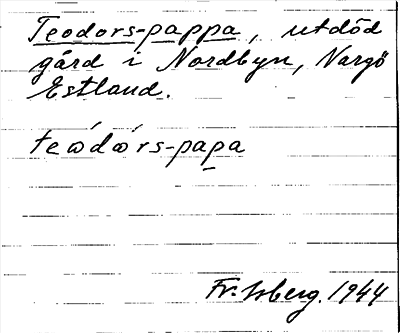 Teodors-pappa, utdöd
gård i Nordbyn, Nargö
Estland.
teώdώrs-papa
Fr. Isberg. 1944